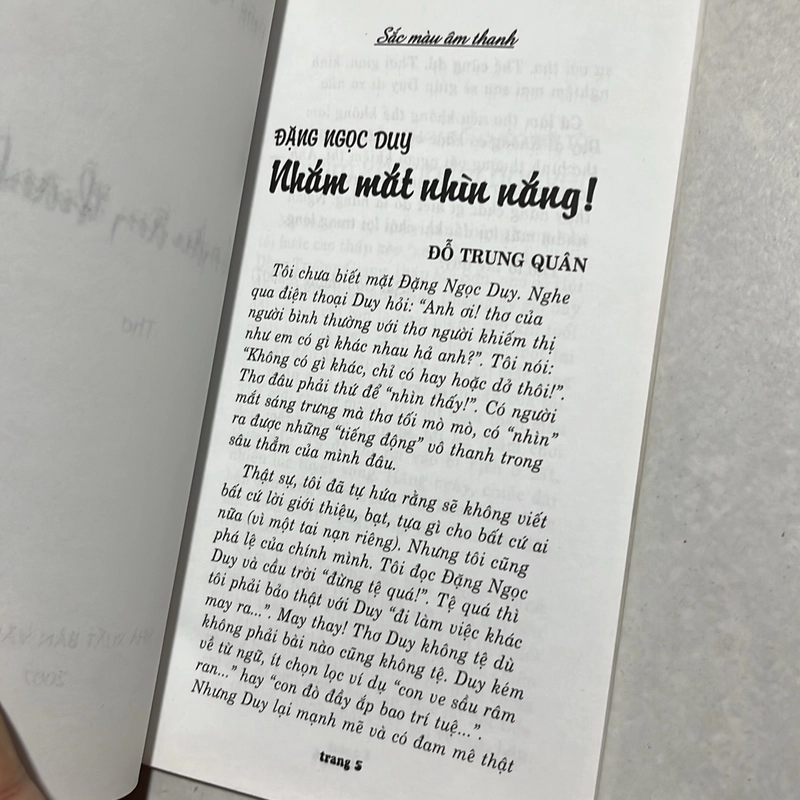 Sắc màu âm thanh
ĐẶNG NGỌC DUY
Nhắm mắt nhìn nắng!
ĐỖ TRUNG QUÂN
Tôi chưa biết mặt Đặng Ngọc Duy. Nghe
qua điện thoại Duy hỏi: “Anh ơi! thơ của
người bình thường với thơ người khiếm thị
như em có gì khác nhau hả anh?”. Tôi nói:
“Không có gì khác, chỉ có hay hoặc dở thôi!”.
Thơ đâu phải thứ để “nhìn thấy!”. Có người
mắt sáng trưng mà thơ tối mò mò, có “nhìn”
ra được những “tiếng động” vô thanh trong
sâu thẳm của mình đâu.
Thật sự, tôi đã tự hứa rằng sẽ không viết
bất cứ lời giới thiệu, bạt, tựa gì cho bất cứ ai
nữa (vì một tai nạn riêng). Nhưng tôi cũng
phá lệ của chính mình. Tôi đọc Đặng Ngọc
Duy và cầu trời “đừng tệ quá!”. Tệ quá thì
tôi phải bảo thật với Duy “đi làm việc khác
may ra...”. May thay! Thơ Duy không tệ dù
không phải bài nào cũng không tệ. Duy kém
về từ ngữ, ít chọn lọc ví dụ “con ve sầu râm
ran...” hay “con đò đầy ắp bao trí tuệ...”.
Nhưng Duy lại mạnh mẽ và có đam mê thật
trang 5
Thơ
2007